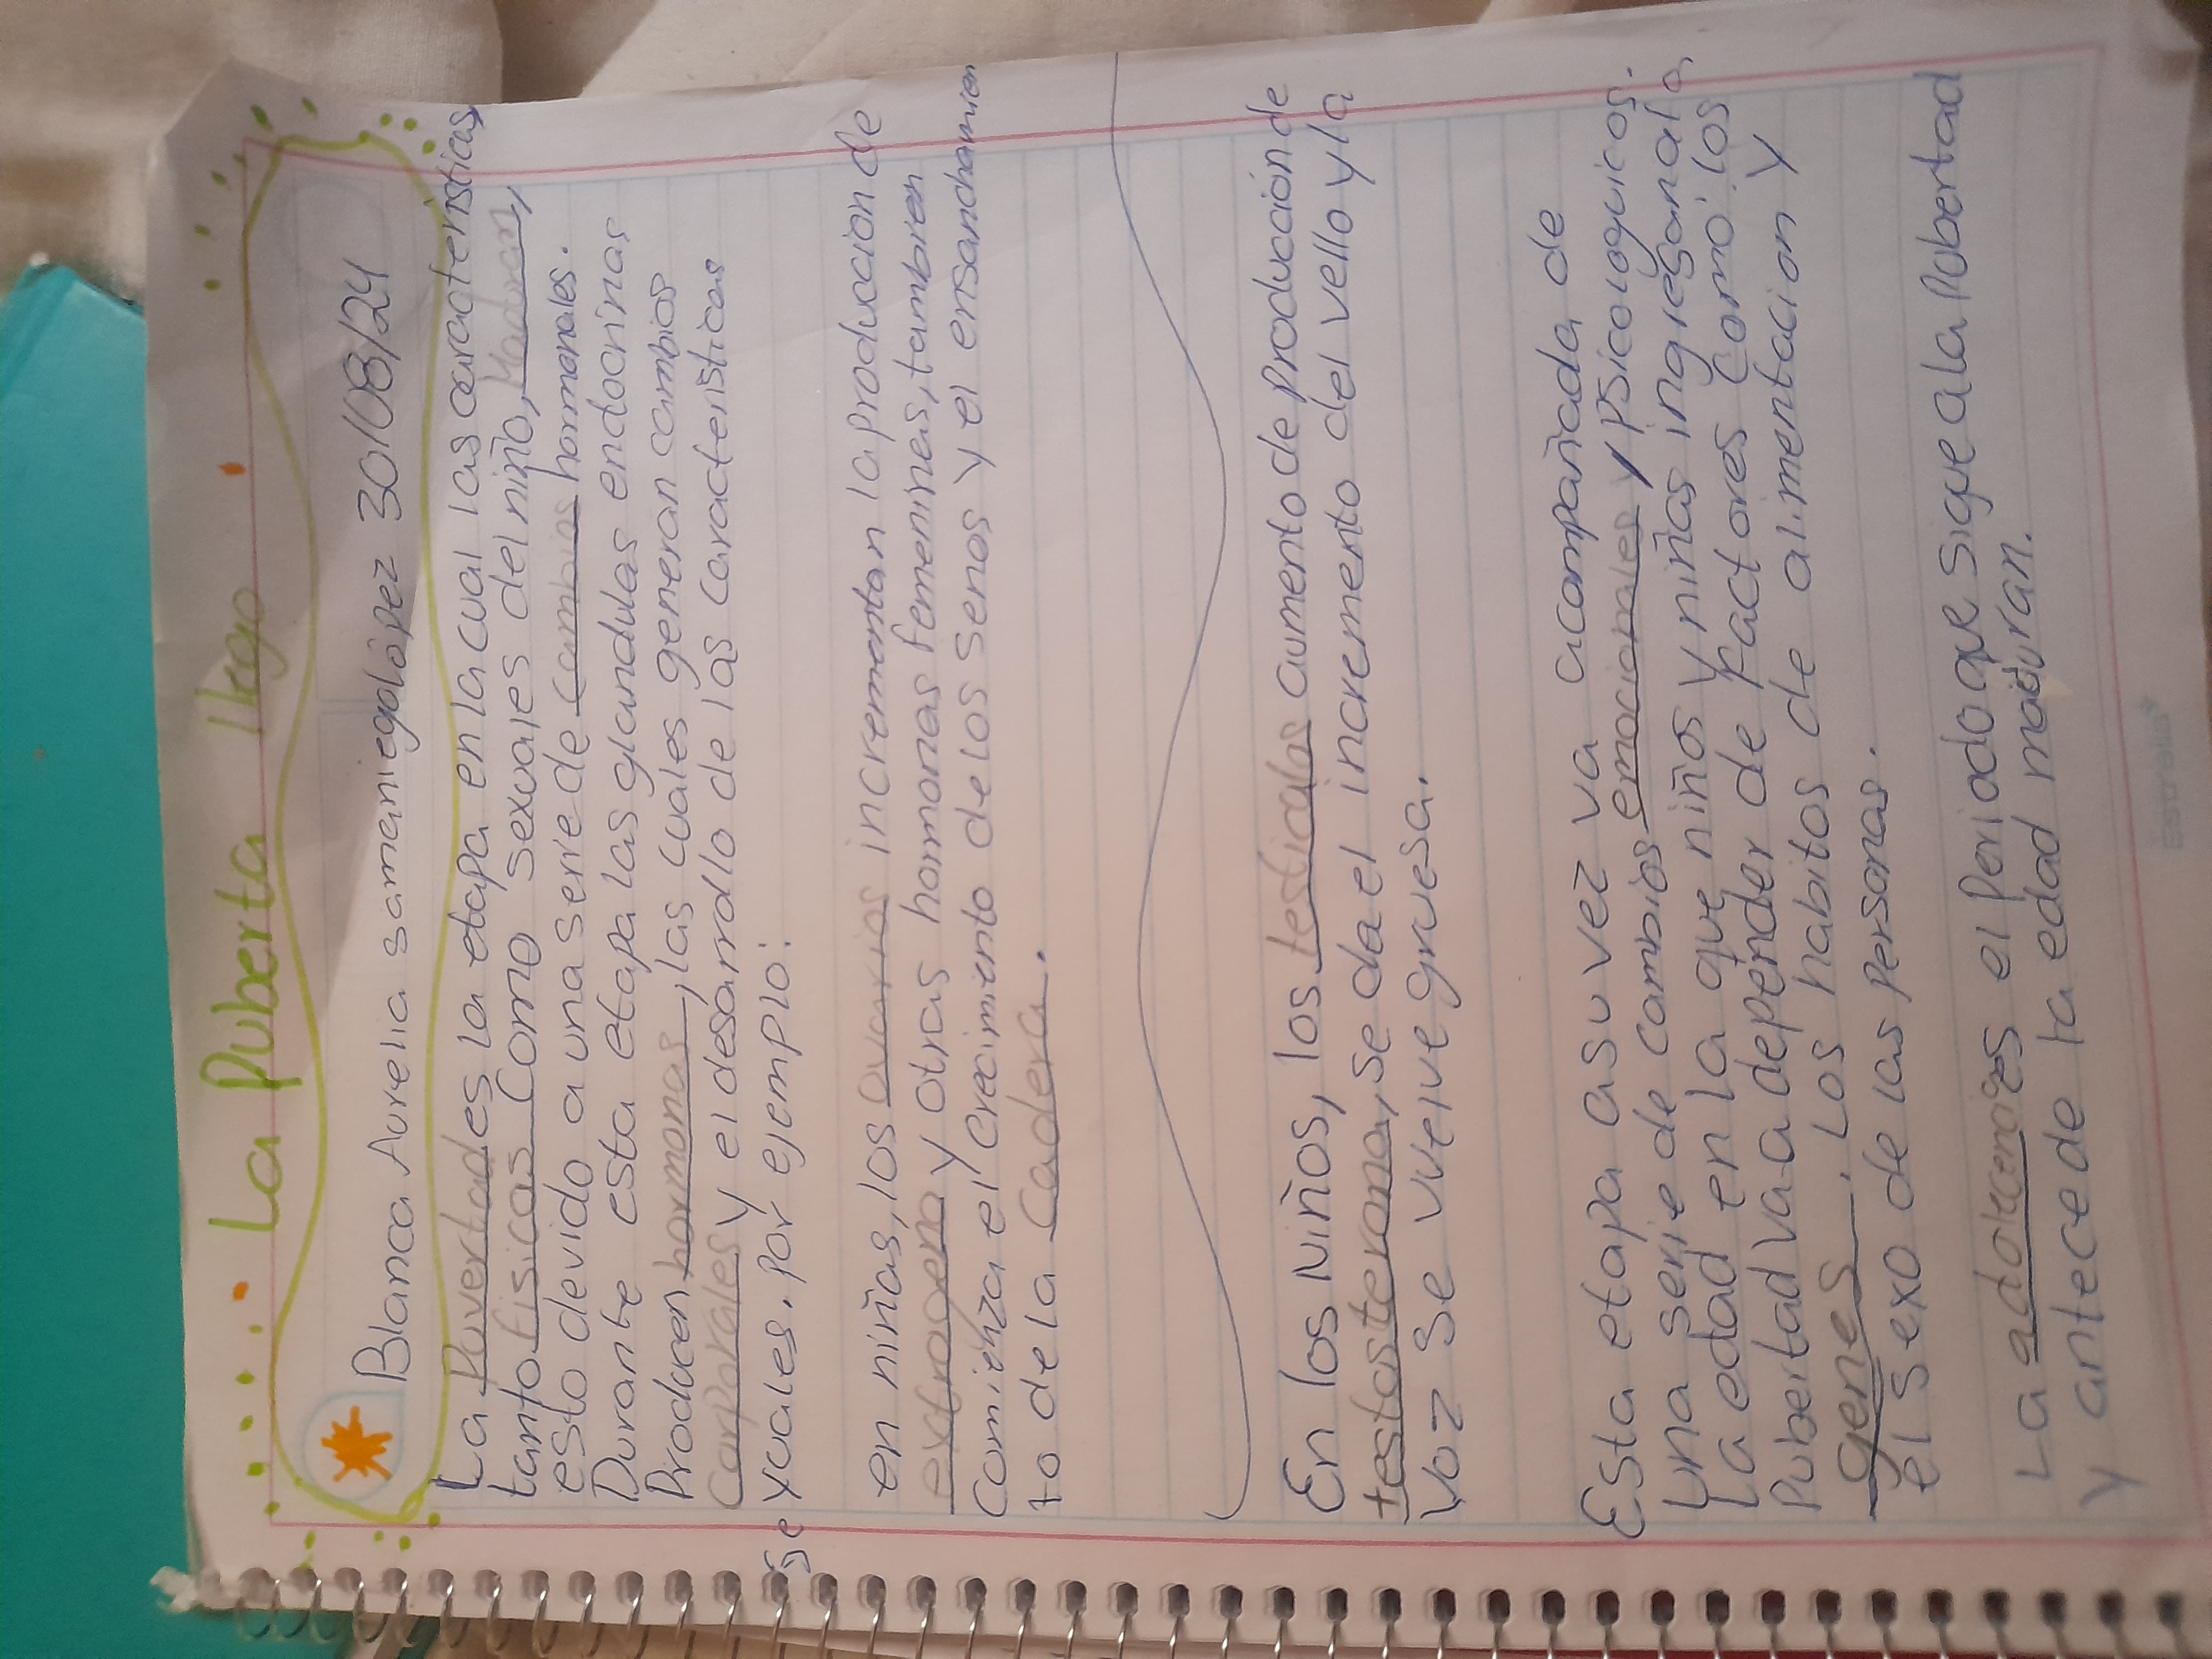 La Puberta llego
Blanca Aurelia samaniego lópez 30/08/24
La Puvertad es la etapa en la cual las caracteristicas
tanto fisicas como sexuales del niño, Maduran,
esto devido a una serie de cambios hormonales.
Durante esta etapa las glandulas endocrinas
Producen hormonas, las cuales generan cambios
Corporales y el desarrollo de las caracteristicas
se xuales. por ejemplo:
en niñas, los ovarios incrementan la produccion de
extrogeno y otras hormonas femeninas, tambien
comienza el crecimiento de los senos y el ensanchamien
to de la Cadera.
En los Niños, los testiculos aumento de producción de
testosterona, se da el incremento del vello y la
Voz se vuelve gruesa.
Esta etapa a su vez va acompañada de
una serie de cambios emocionales y psicologuicos.
La edad en la que niños y niñas ingresan a la
Pubertad va a depender de factores como: los
genes. Los habitos de alimentacion y
el sexo de las personas.
La adolecencia es el periodo que sigue a la Pubertad
y antecede la edad maduran.
Estrella